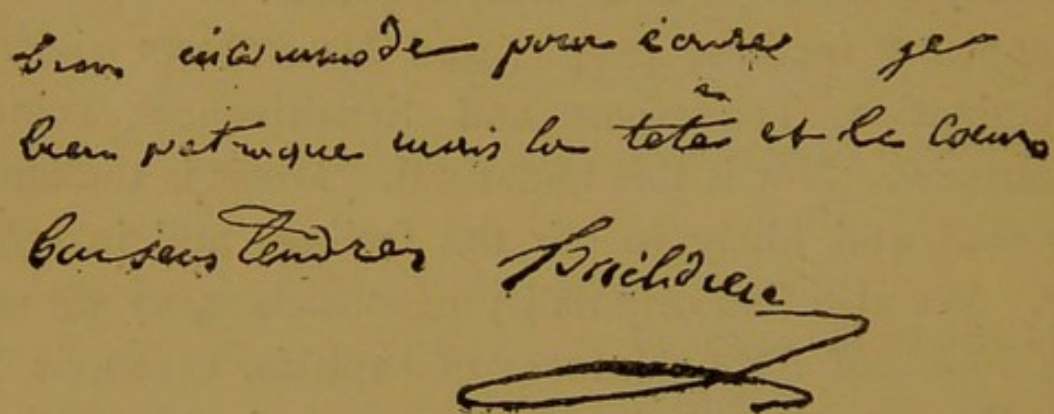 bien incommode pour écrire je
bien patraque mais la tête et le coeur
baisers tendres